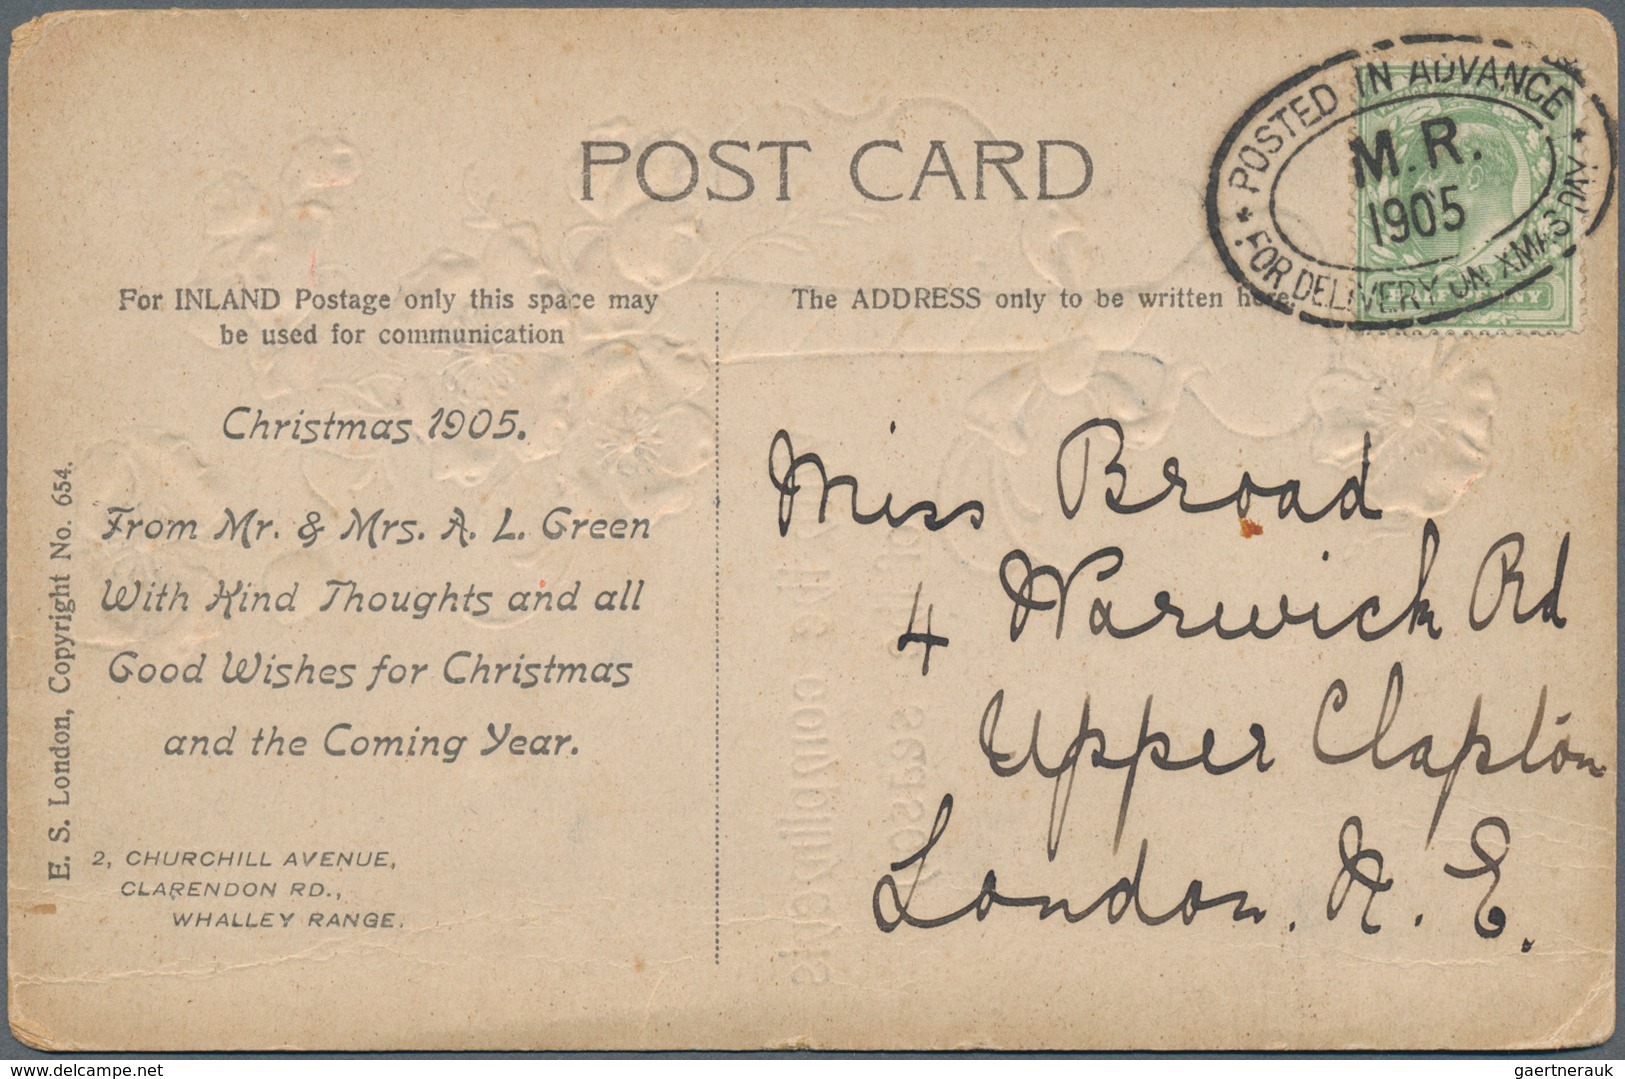 POST CARD
POSTED IN ADVANCE
M.R.
1905
FOR DELIVERY ON XMAS DAY
HALFPENNY
For INLAND Postage only this space may
be used for communication
The ADDRESS only to be written here.
Christmas 1905.
From Mr. & Mrs. A. L. Green
With Kind Thoughts and all
Good Wishes for Christmas
and the Coming Year.
2, CHURCHILL AVENUE,
CLARENDON RD.,
WHALLEY RANGE.
E. S. London, Copyright No. 654.
Miss Broad
4 Warwick Rd
Upper Clapton
London. N. E.
www.delcampe.net
gaertnerauk